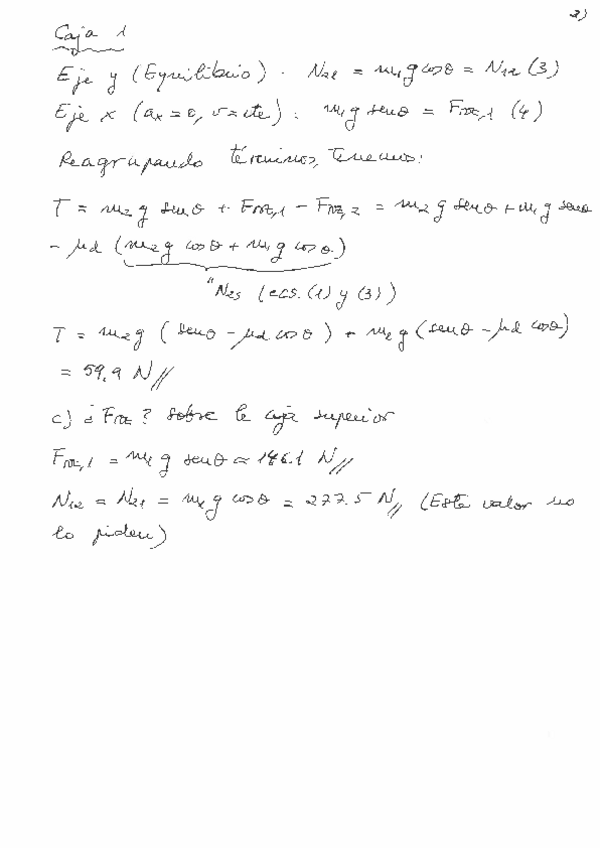 2)
Caja 1
Eje y (Equilibrio). N21 = m1 g cosθ = N12 (3)
Eje x (ax = 0, v = cte): m1 g senθ = Froz,1 (4)
Reagrupando términos, tenemos:
T = m2 g senθ + Froz,1 - Froz,2 = m2 g senθ + m1 g senθ
- μd (m2 g cosθ + m1 g cosθ)
"N2s (ecs. (1) y (3))
T = m2 g (senθ - μd cosθ) + m1 g (senθ - μd cosθ)
= 59,9 N//
c) ¿Froz? sobre la caja superior
Froz,1 = m1 g senθ = 146.1 N//
N12 = N21 = m1 g cosθ = 277.5 N// (Este valor no
lo piden)